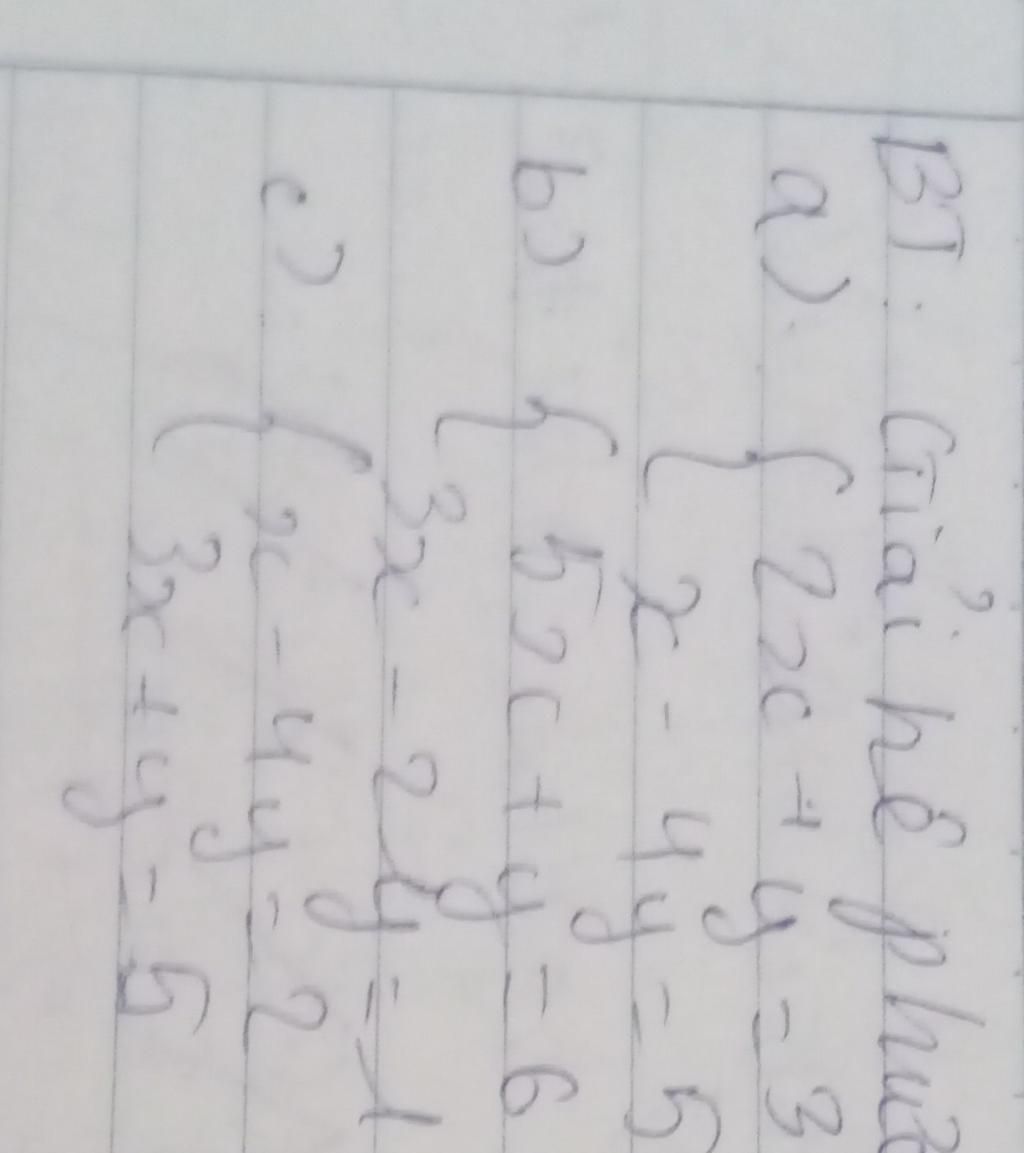 BT. Giải hệ
a) { 2x + y = 3
x - 4y = 5
b) { 5x + y = 6
3x - 2y = 1
c) { x - 4y = 2
3x + y = 5